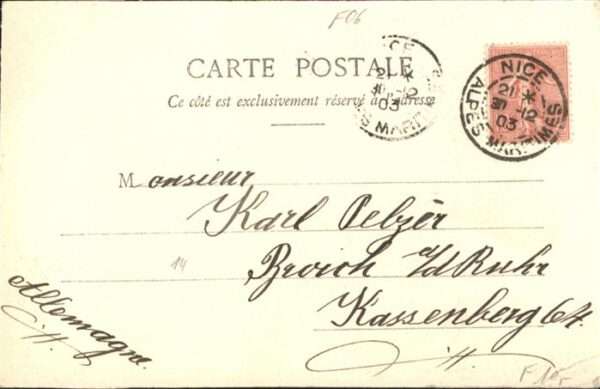 F06
CARTE POSTALE
Ce côté est exclusivement réservé à l'adresse
NICE
21 *
12
03
ALPES MARITIMES
NICE
21 *
12
03
ALPES MARITIMES
Monsieur
Karl Pelzer
Broich a/d Ruhr
Kassenberg 64.
Allemagne.
14